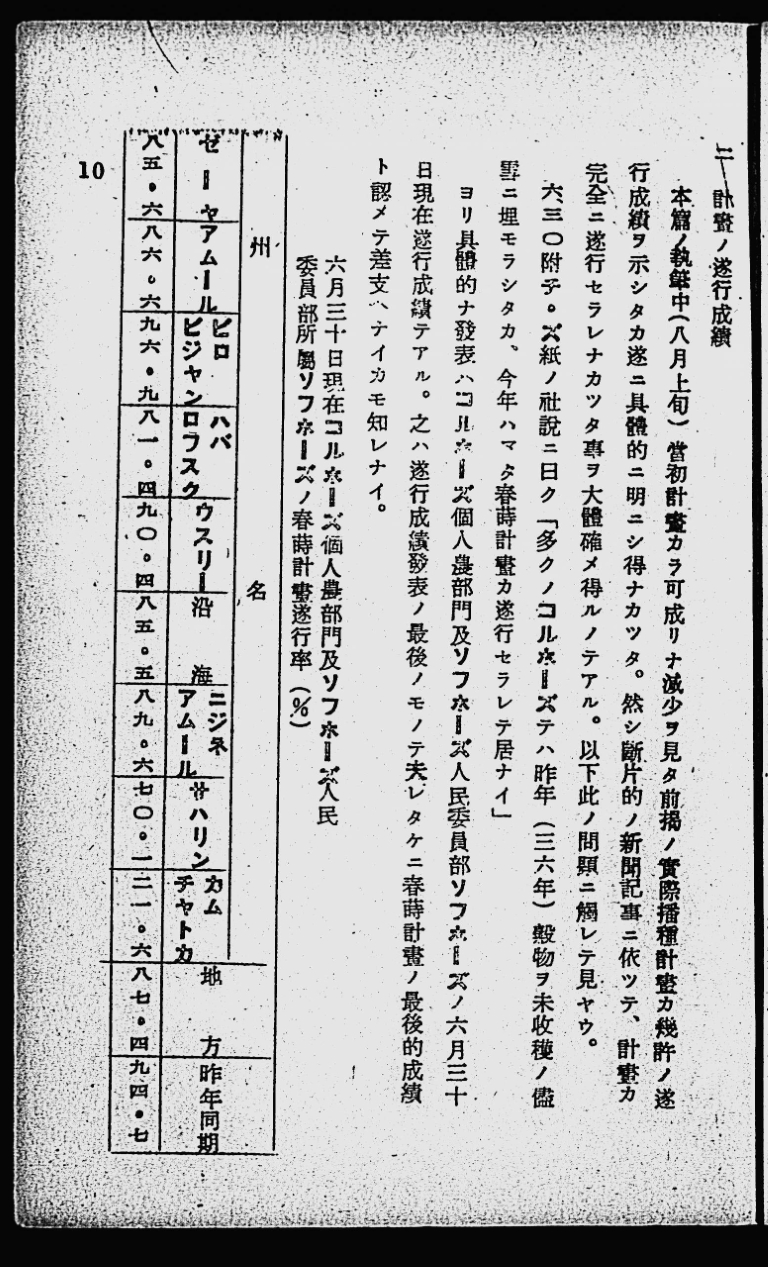 二 計畫ノ遂行成績
本篇ノ執筆中(八月上旬)當初計畫カラ可成リナ減少ヲ見タ前揭ノ實際播種計畫カ幾許ノ遂
行成績ヲ示シタカ遂ニ具體的ニ明ニシ得ナカツタ。然シ斷片的ノ新聞記事ニ依ツテ、計畫カ
完全ニ遂行セラレナカツタ事ヲ大體確メ得ルノテアル。以下此ノ問題ニ觸レテ見ヤウ。
六三〇附チ。ズ紙ノ社說ニ曰ク「多クノコルホーズテハ昨年(三六年)穀物ヲ未收穫ノ儘
雪ニ埋モラシタカ、今年ハマタ春蒔計畫カ遂行セラレテ居ナイ」
ヨリ具體的ナ發表ハコルホーズ個人農部門及ソフホーズ人民委員部ソフホーズノ六月三十
日現在遂行成績テアル。之ハ遂行成績發表ノ最後ノモノテ夫レタケニ春蒔計畫ノ最後的成績
ト認メテ差支ヘナイカモ知レナイ。
六月三十日現在コルホーズ個人農部門及ソフホーズ人民
委員部所屬ソフホーズノ春蒔計畫遂行率(%)
州名
ゼーヤ
アムール
ビロビジャン
ハバロフスク
ウスリー
沿海
ニジネアムール
サハリン
カムチャトカ
地方
昨年同期
八五・六
八六・六
九六・九
八一・四
九〇・四
八五・五
八九・六
七〇・一
二一・六
八七・四
九四・七
10